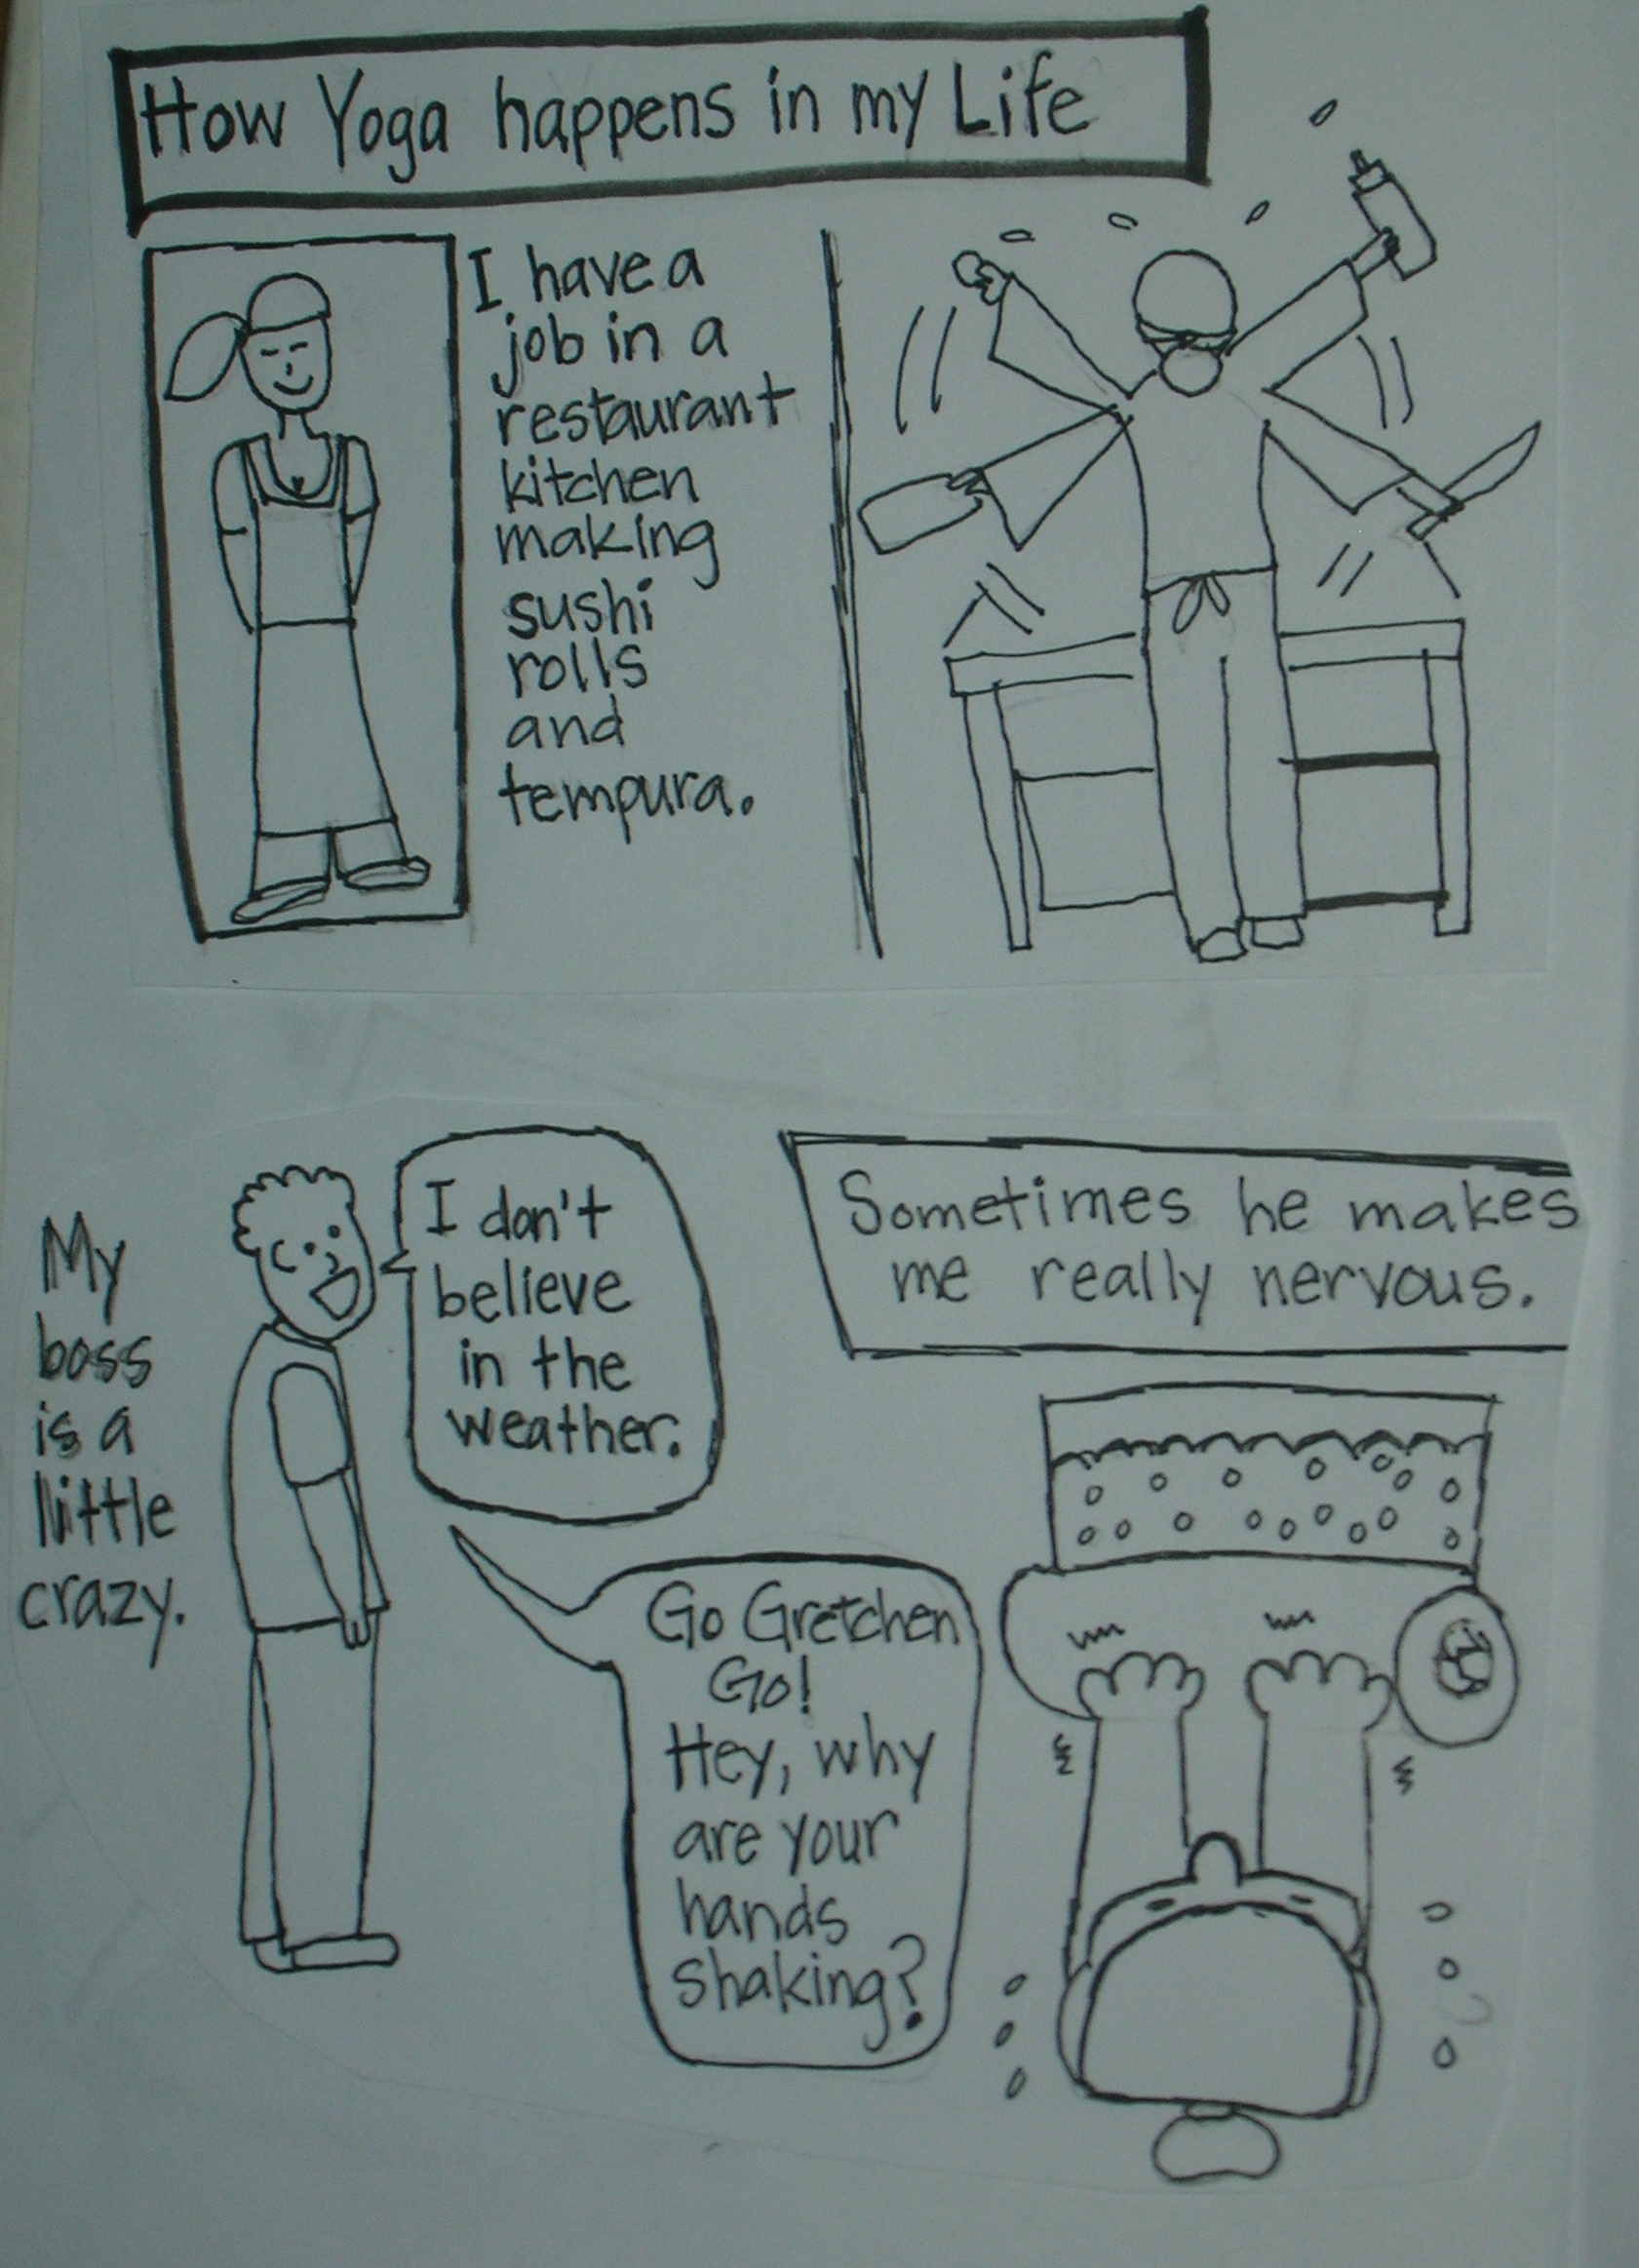 How Yoga happens in my Life
I have a
job in a
restaurant
kitchen
making
sushi
rolls
and
tempura.
My
boss
is a
little
crazy.
I don't
believe
in the
weather.
Go Gretchen
Go!
Hey, why
are your
hands
shaking?
Sometimes he makes
me really nervous.